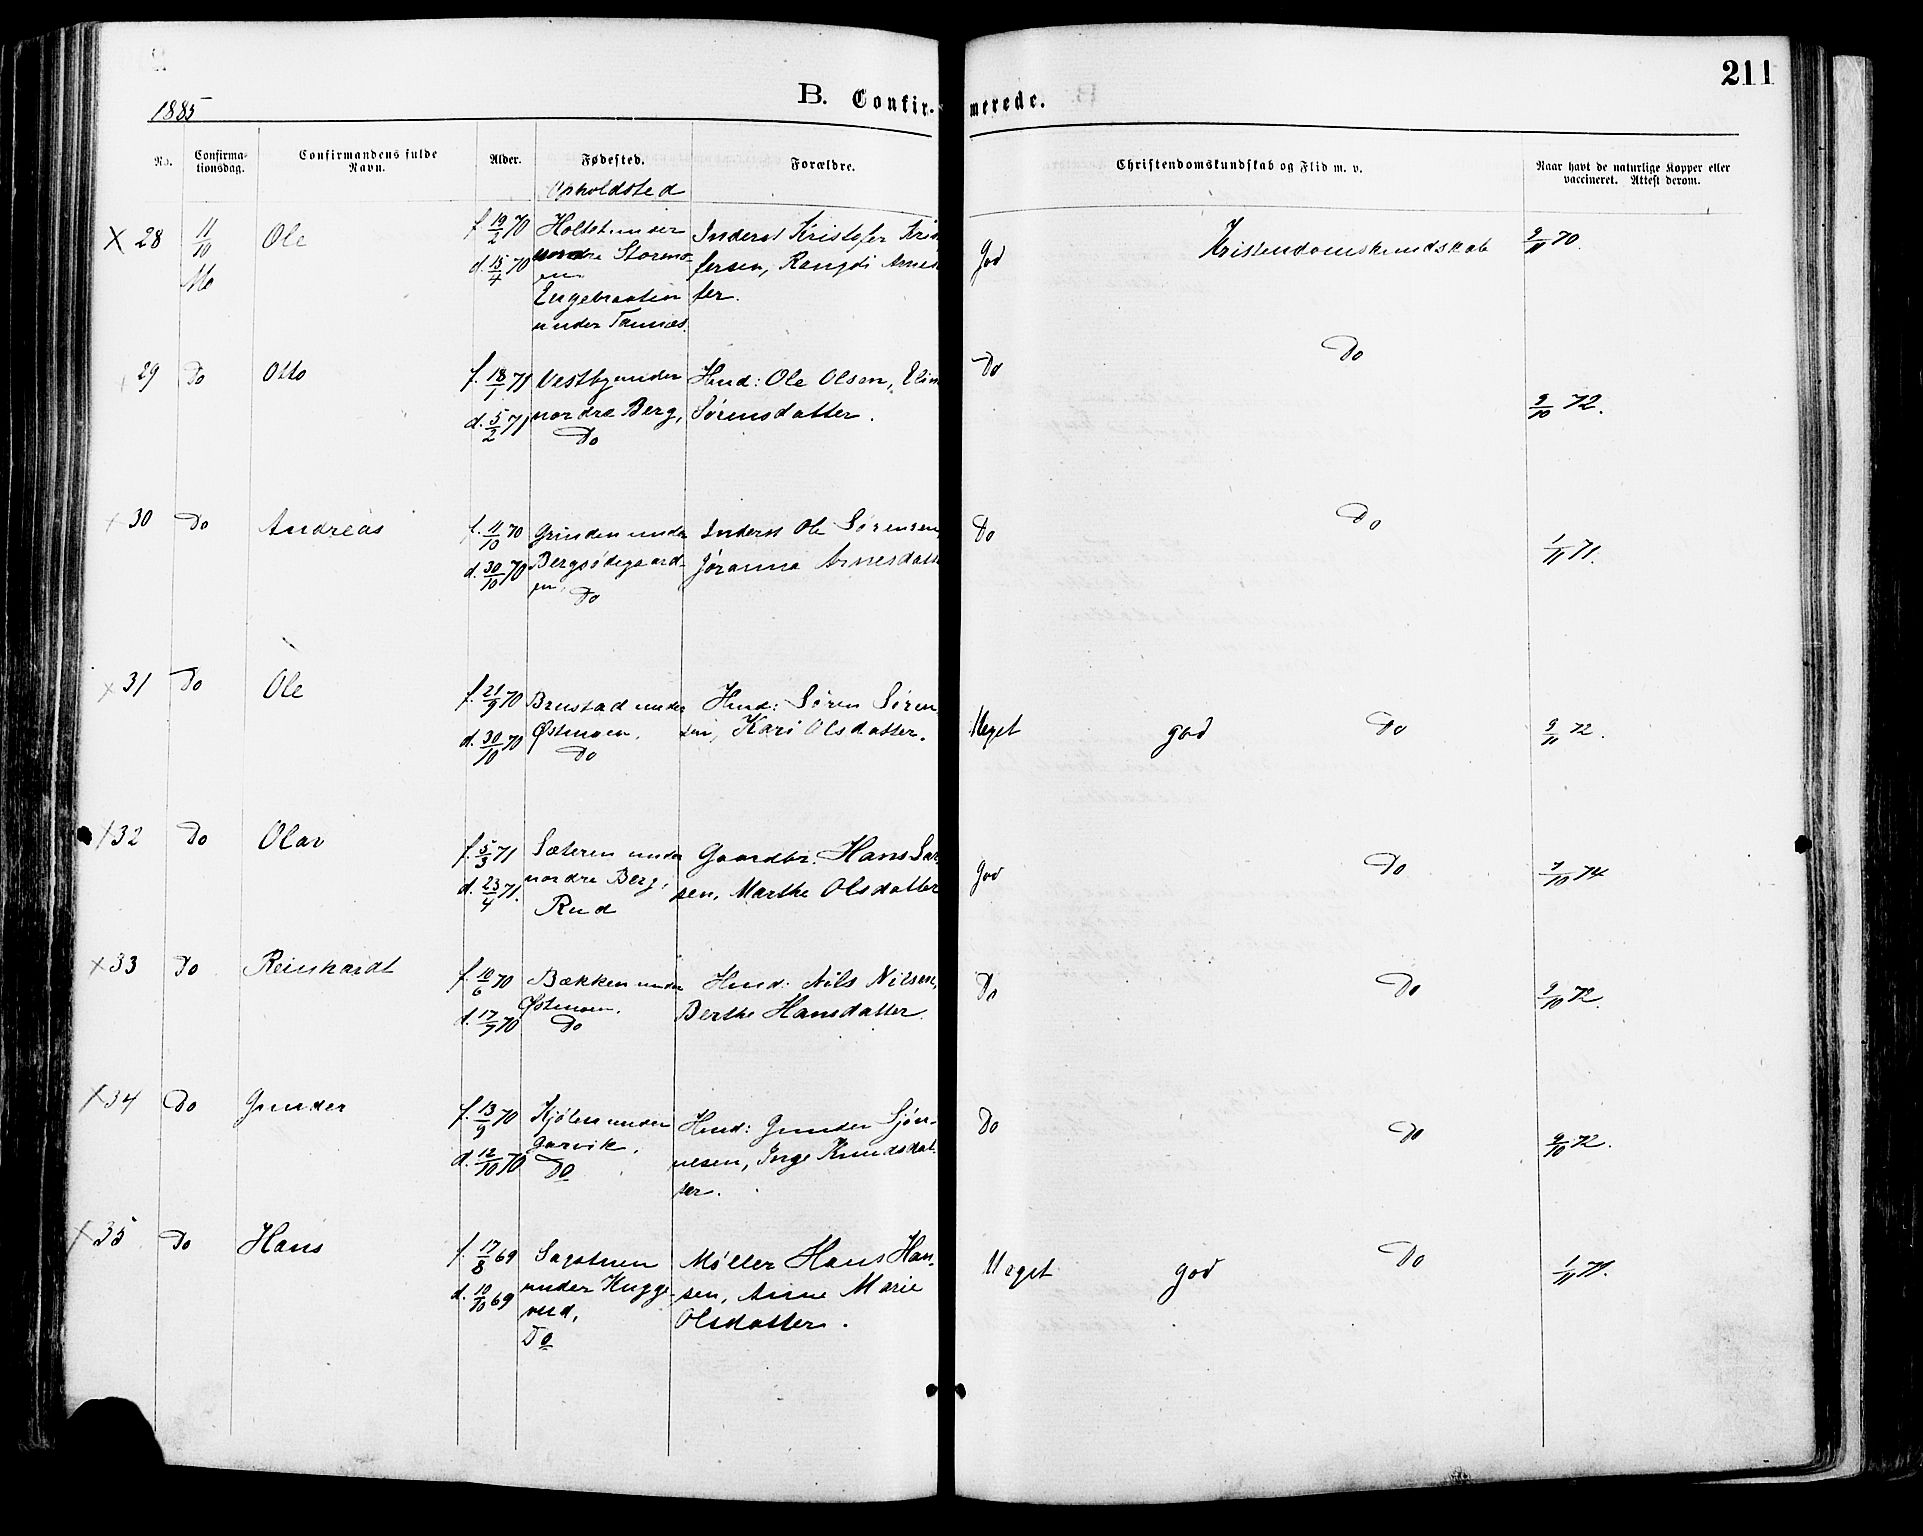 211
1885
B. Confirmerede.
No. Confirmationsdag. Confirmandens fulde Navn. Alder. Fødested. Forældre. Christendomskundskab og Flid m. v. Naar havt de naturlige Kopper eller vaccineret. Attest derom.
Opholdsted
X 28 11/10 Ole f 19/2 70 Holtet under Inderst Kristofer Kris god Kristendomskundskab 9/11 70.
Mo d. 15/4 70 søndre Storemo fersen, Rangdi Arnes
en
Engebraaten ter.
under Tannæs.
29 Do Otto f. 18/1 71 Vestby under Husd: Ole Olsen, Elin Do Do
d. 5/2 71 nordre Berg, Sørensdatter. 9/10 72.
Do
30 Do Andreas f. 11/10 70 Grinden under Inderst Ole Sørensen, Do Do
d. 30/10 70 Bergsødegaard Jøranna Arnesdatt 1/11 71.
en, Do
x 31 Do Ole f. 21/9 70 Brustad under Husd: Søren Søren
d. 30/10 70 Østmoen. sen, Kari Olsdatter. Meget god Do 9/11 72.
Do
x 32 Do Olav f. 5/3 71 Sæteren under Gaardbr. Hans Lar
d. 23/4 71. nordre Berg, sen, Marthe Olsdatter god Do 7/10 74
Rud
x 33 Do Reinhardt f. 10/6 70 Bækken under Husd: Nils Nilsen, Do Do 9/10 72.
d. 17/7 70 Østmoen. Berthe Hansdatter.
Do
x 34 Do Gunder f. 13/9 70 Kjølen under Husd: Gunder Gjøn- Do Do
d. 12/10 70 Garvik. nesen, Inge Knudsdat 9/10 72.
Do ter.
x 35 Do Hans f. 17/8 69 Sagstuen Møller Hans Han
d. 10/10 69 under Hugge- sen, Anne Marie Meget god Do 1/11 71.
rud, Olsdatter.
Do